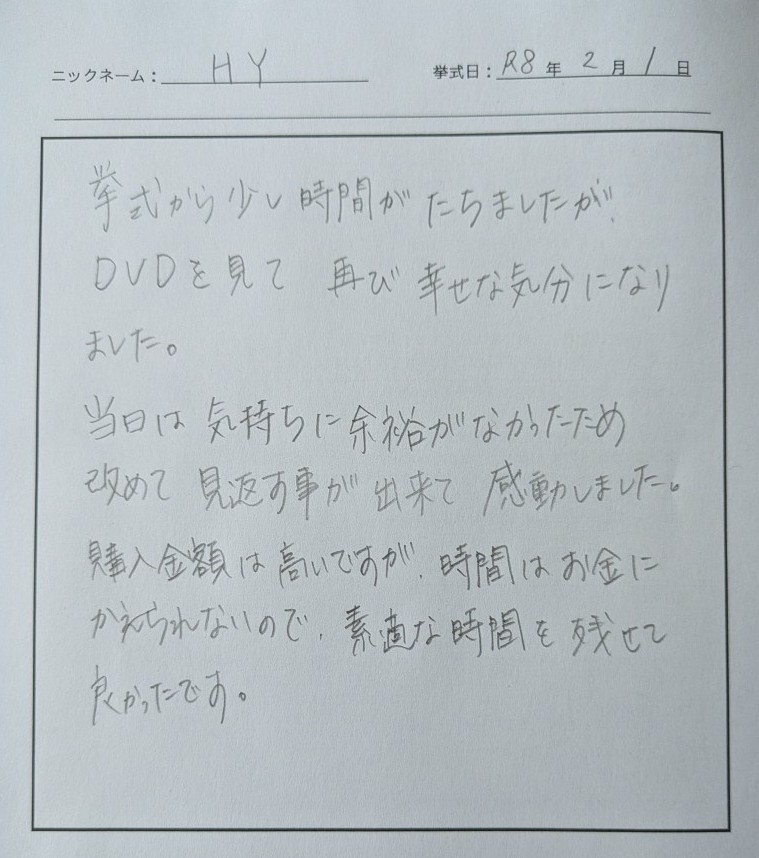 ニックネーム： HY 挙式日： R8 年 2 月 1 日
挙式から少し時間がたちましたが、
DVDを見て 再び 幸せな気分になり
ました。
当日は 気持ちに余裕がなかったため
改めて 見返す事が 出来て 感動しました。
購入金額は高いですが、時間はお金に
かえられないので、素適な時間を残せて
良かったです。